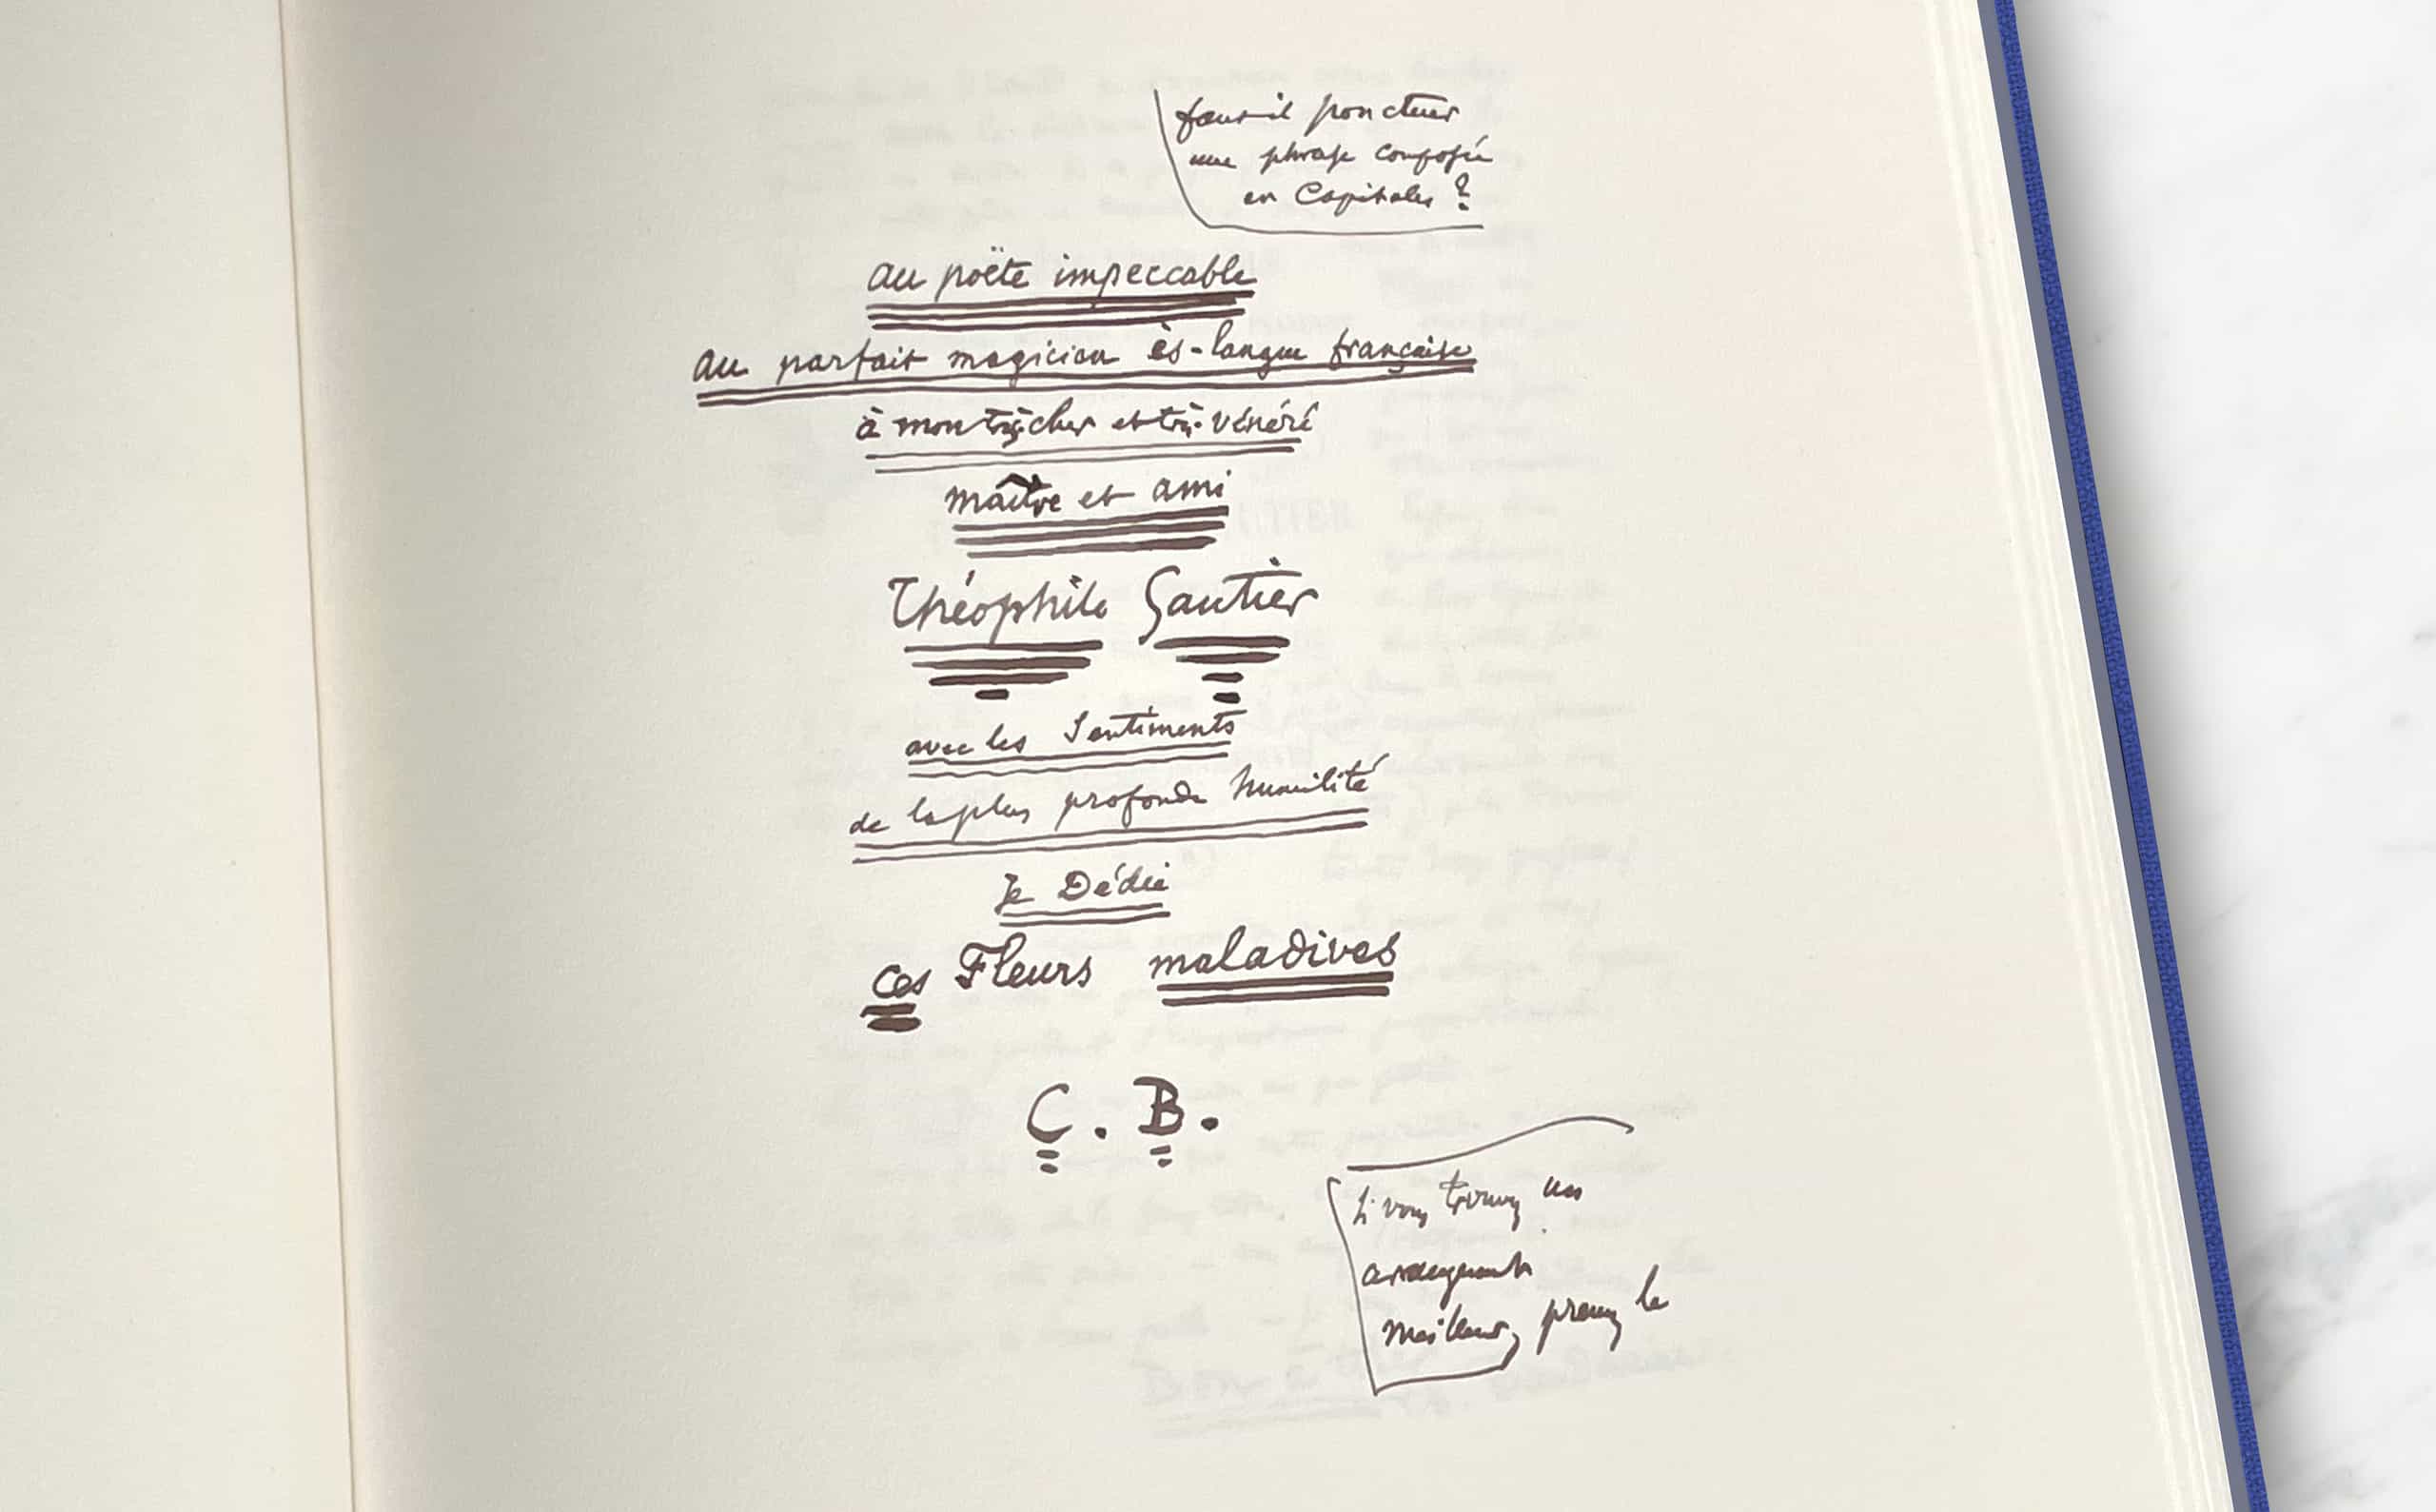 faut-il ponctuer
une phrase composée
en Capitales ?
au poëte impeccable
au parfait magicien ès-langue française
à mon très-cher et très-vénéré
maître et ami
Théophile Gautier
avec les Sentiments
de la plus profonde humilité
Je Dédie
ces Fleurs maladives
C. B.
Si vous trouvez un
arrangement
meilleur, prenez le